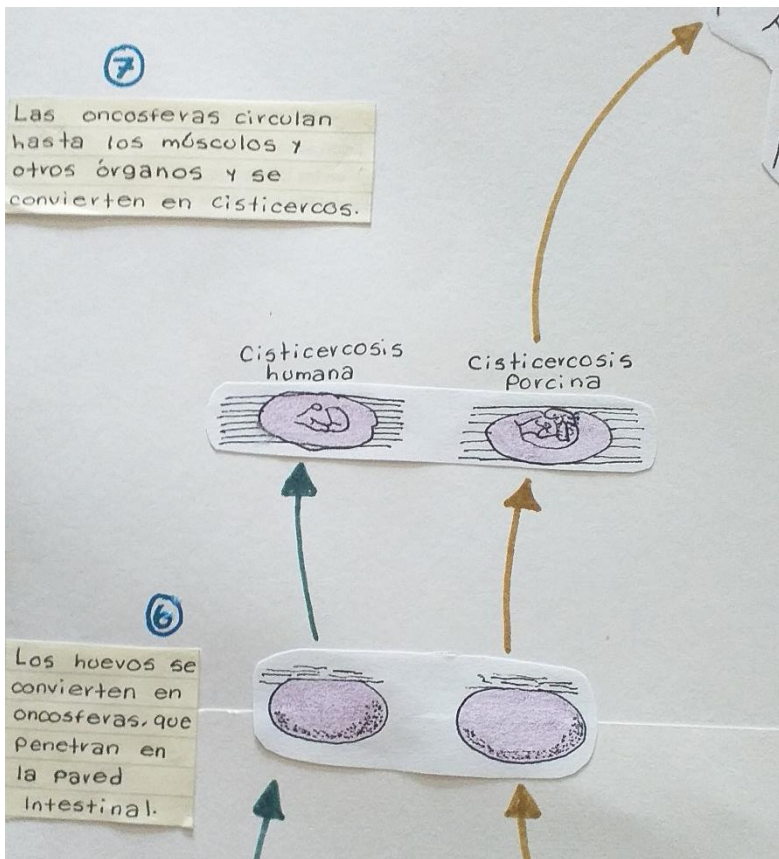 7
Las oncosferas circulan
hasta los músculos y
otros órganos y se
convierten en cisticercos.
Cisticercosis
humana
Cisticercosis
Porcina
6
Los huevos se
convierten en
oncosferas, que
penetran en
la pared
Intestinal.